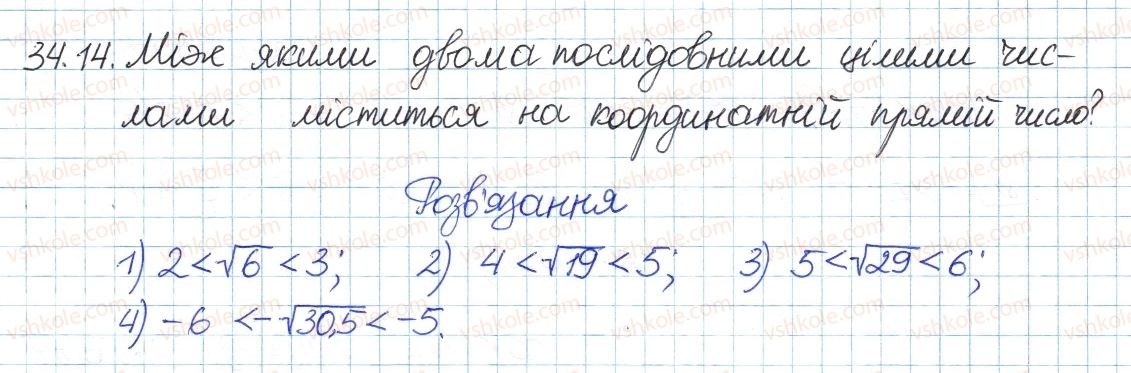 34.14. Між якими двома послідовними цілими чис-
лами міститься на координатній прямій число?
Розв'язання
1) 2 < √6 < 3; 2) 4 < √19 < 5; 3) 5 < √29 < 6;
4) -6 < -√30,5 < -5.